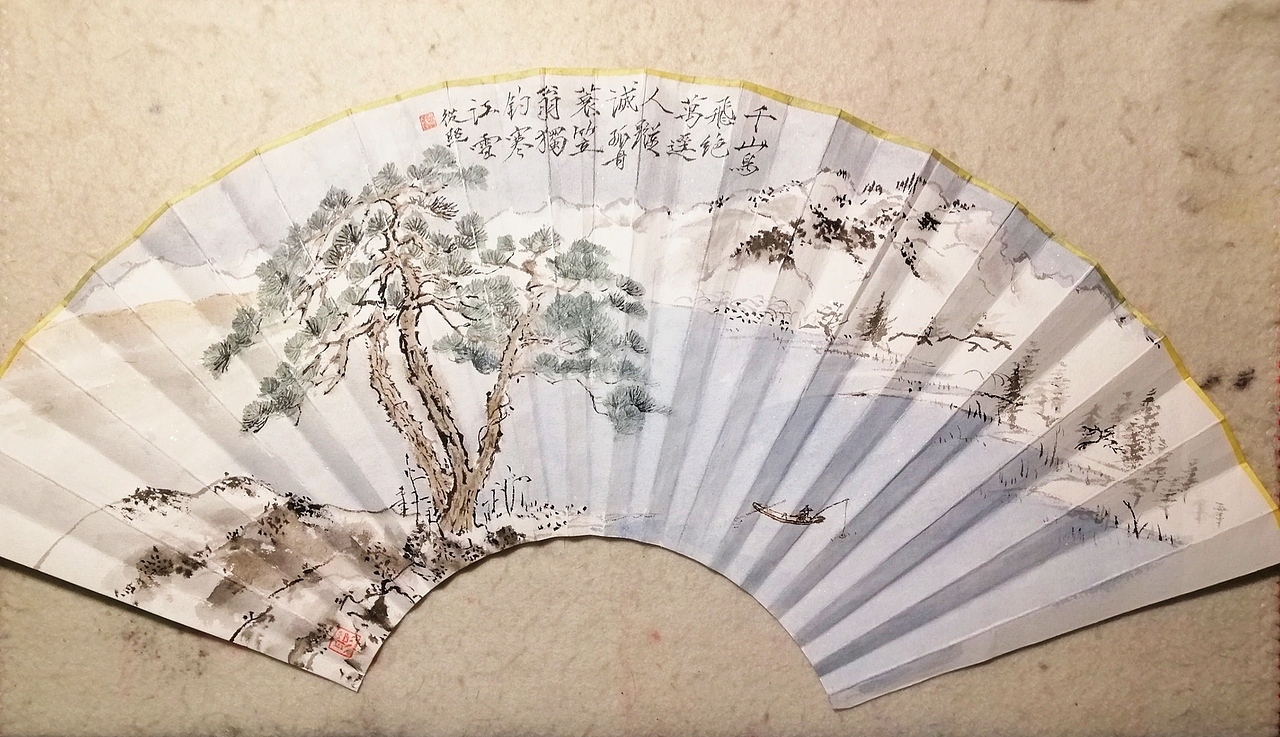 千山鳥
飛絕
萬逕
人蹤
滅孤舟
蓑笠
翁獨
釣寒
江雪